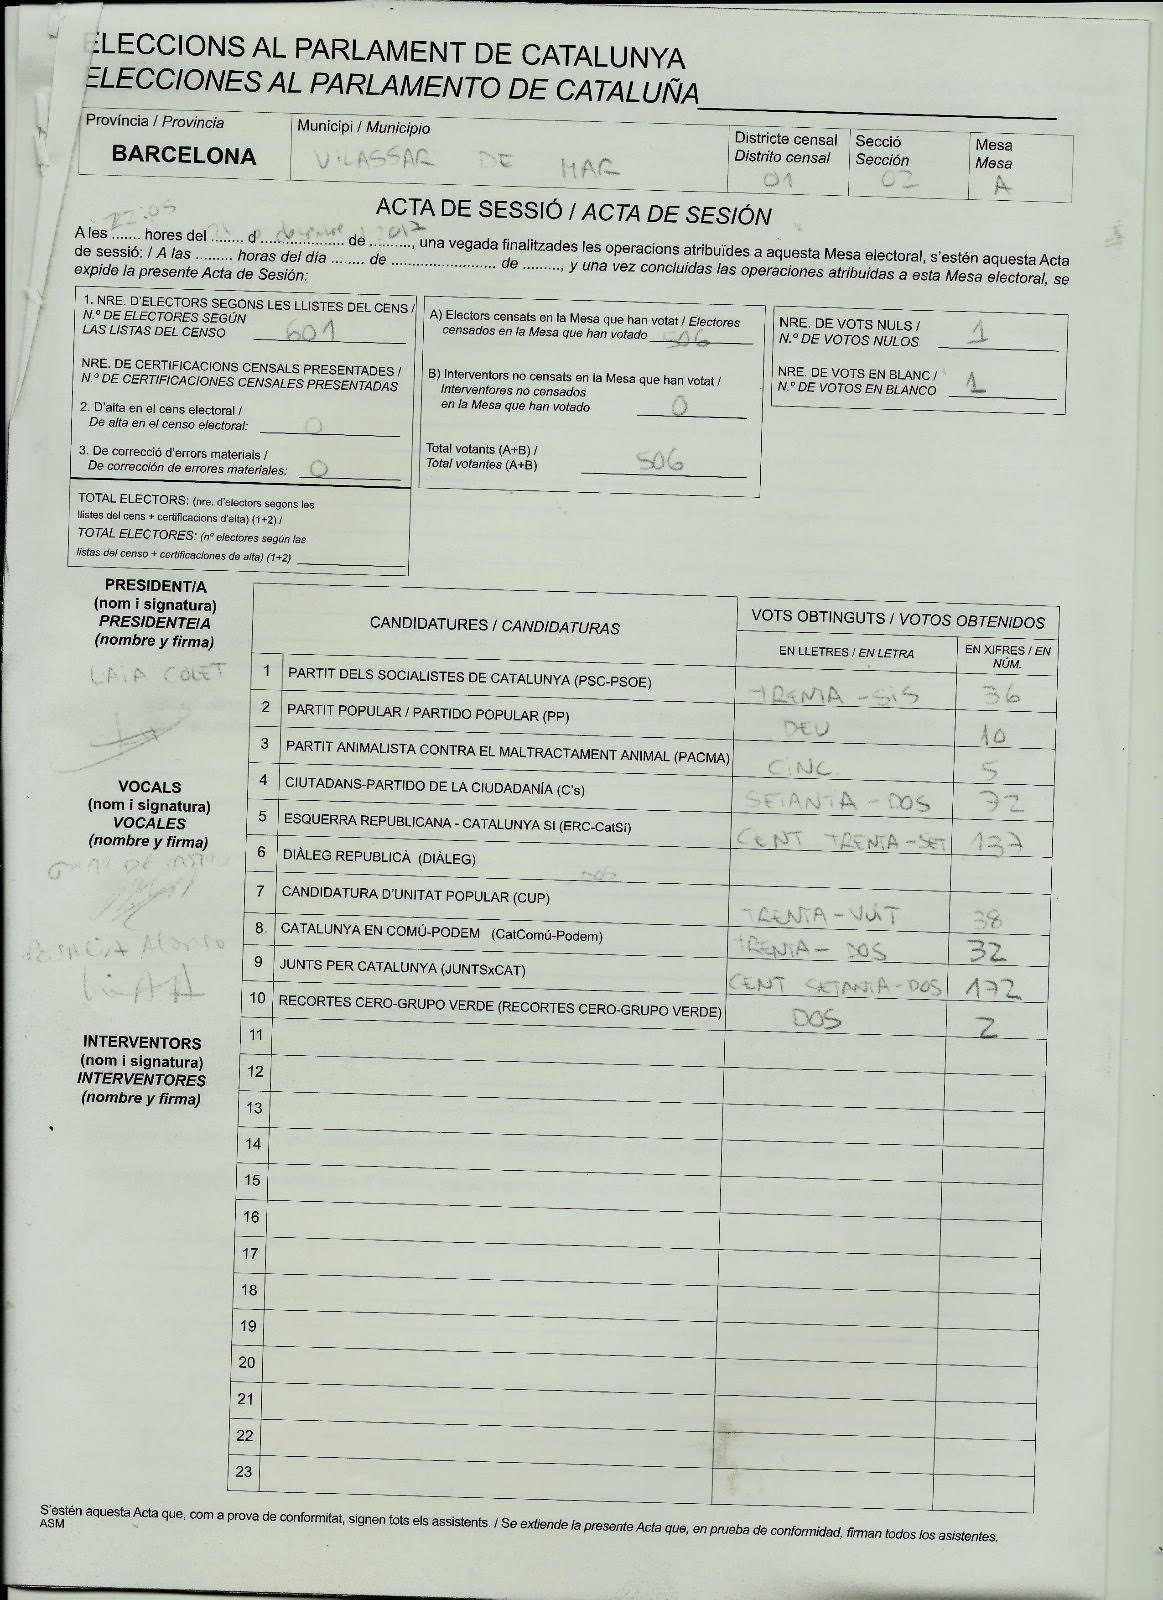 ELECCIONS AL PARLAMENT DE CATALUNYA
ELECCIONES AL PARLAMENTO DE CATALUÑA
Província / Provincia
BARCELONA
Municipi / Municipio
VILASSAR DE MAR
Districte censal
Distrito censal
01
Secció
Sección
02
Mesa
Mesa
A
ACTA DE SESSIÓ / ACTA DE SESIÓN
22:05
A les ....... hores del ........ d .................... de .........., una vegada finalitzades les operacions atribuïdes a aquesta Mesa electoral, s'estén aquesta Acta
desembre 2017
de sessió: / A las ......... horas del día ........ de ......................... de ........., y una vez concluidas las operaciones atribuidas a esta Mesa electoral, se
expide la presente Acta de Sesión:
1. NRE. D'ELECTORS SEGONS LES LLISTES DEL CENS /
N.º DE ELECTORES SEGÚN
LAS LISTAS DEL CENSO 601
NRE. DE CERTIFICACIONS CENSALS PRESENTADES /
N.º DE CERTIFICACIONES CENSALES PRESENTADAS
2. D'alta en el cens electoral /
De alta en el censo electoral: 0
3. De correcció d'errors materials /
De corrección de errores materiales: 0
TOTAL ELECTORS: (nre. d'electors segons les
llistes del cens + certificacions d'alta) (1+2) /
TOTAL ELECTORES: (nº electores según las
listas del censo + certificaciones de alta) (1+2)
A) Electors censats en la Mesa que han votat / Electores
censados en la Mesa que han votado 506
B) Interventors no censats en la Mesa que han votat /
Interventores no censados
en la Mesa que han votado 0
Total votants (A+B) /
Total votantes (A+B) 506
NRE. DE VOTS NULS /
N.º DE VOTOS NULOS 1
NRE. DE VOTS EN BLANC /
N.º DE VOTOS EN BLANCO 1
PRESIDENT/A
(nom i signatura)
PRESIDENTE/A
(nombre y firma)
LAIA COLET
VOCALS
(nom i signatura)
VOCALES
(nombre y firma)
INTERVENTORS
(nom i signatura)
INTERVENTORES
(nombre y firma)
CANDIDATURES / CANDIDATURAS
VOTS OBTINGUTS / VOTOS OBTENIDOS
EN LLETRES / EN LETRA
EN XIFRES / EN
NÚM.
1 PARTIT DELS SOCIALISTES DE CATALUNYA (PSC-PSOE) TRENTA-SIS 36
2 PARTIT POPULAR / PARTIDO POPULAR (PP) DEU 10
3 PARTIT ANIMALISTA CONTRA EL MALTRACTAMENT ANIMAL (PACMA) CINC 5
4 CIUTADANS-PARTIDO DE LA CIUDADANÍA (C's) SETANTA-DOS 72
5 ESQUERRA REPUBLICANA - CATALUNYA SI (ERC-CatSí) CENT TRENTA-SET 137
6 DIÀLEG REPUBLICÀ (DIÀLEG)
7 CANDIDATURA D'UNITAT POPULAR (CUP) TRENTA-VUIT 38
8 CATALUNYA EN COMÚ-PODEM (CatComú-Podem) TRENTA-DOS 32
9 JUNTS PER CATALUNYA (JUNTSxCAT) CENT SETANTA-DOS 172
10 RECORTES CERO-GRUPO VERDE (RECORTES CERO-GRUPO VERDE) DOS 2
11
12
13
14
15
16
17
18
19
20
21
22
23
S'estén aquesta Acta que, com a prova de conformitat, signen tots els assistents. / Se extiende la presente Acta que, en prueba de conformidad, firman todos los asistentes.
ASM